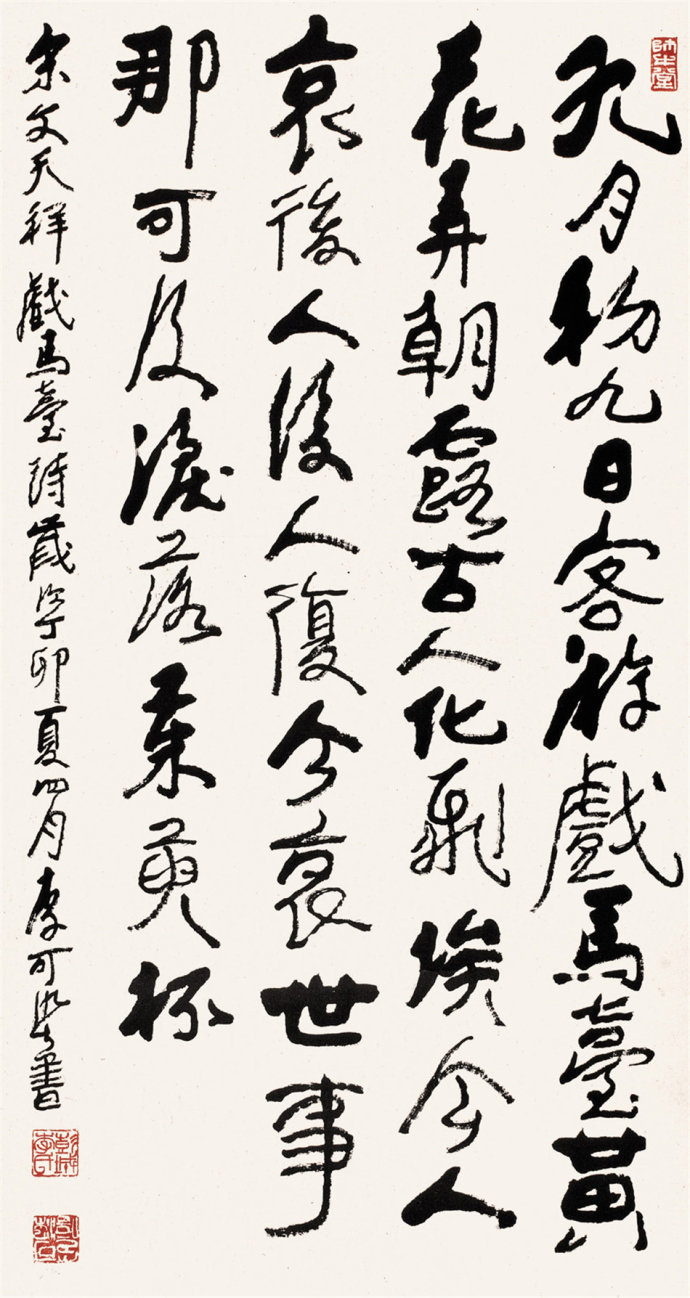 師牛堂
九月初九日客游戲馬臺黃
花弄朝露古人化飛埃今人
哀後人後人復今哀世事
那可及淚落茱萸杯
宋文天祥戲馬臺詩歲次丁卯夏四月李可染書
彭城李氏